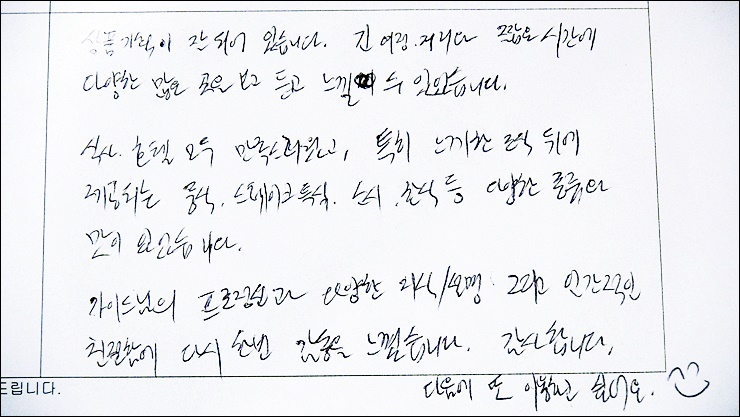 상품 가격이 잘 되어 있습니다. 긴 여정.거리나 짧은 시간에
다양한 많은 곳을 보고 듣고 느낄 수 있었습니다.
식사. 호텔 모두 만족스러웠고, 특히 느끼한 음식 뒤에
제공되는 중식. 스테이크 특식. 스시. 한식 등 다양한 종류와
맛이 있었습니다.
가이드님의 프로정신과 다양한 지식/설명. 그리고 인간적인
친절함에 다시 한번 감동을 느꼈습니다. 감사합니다.
드립니다.
다음에 또 이용하고 싶어요.